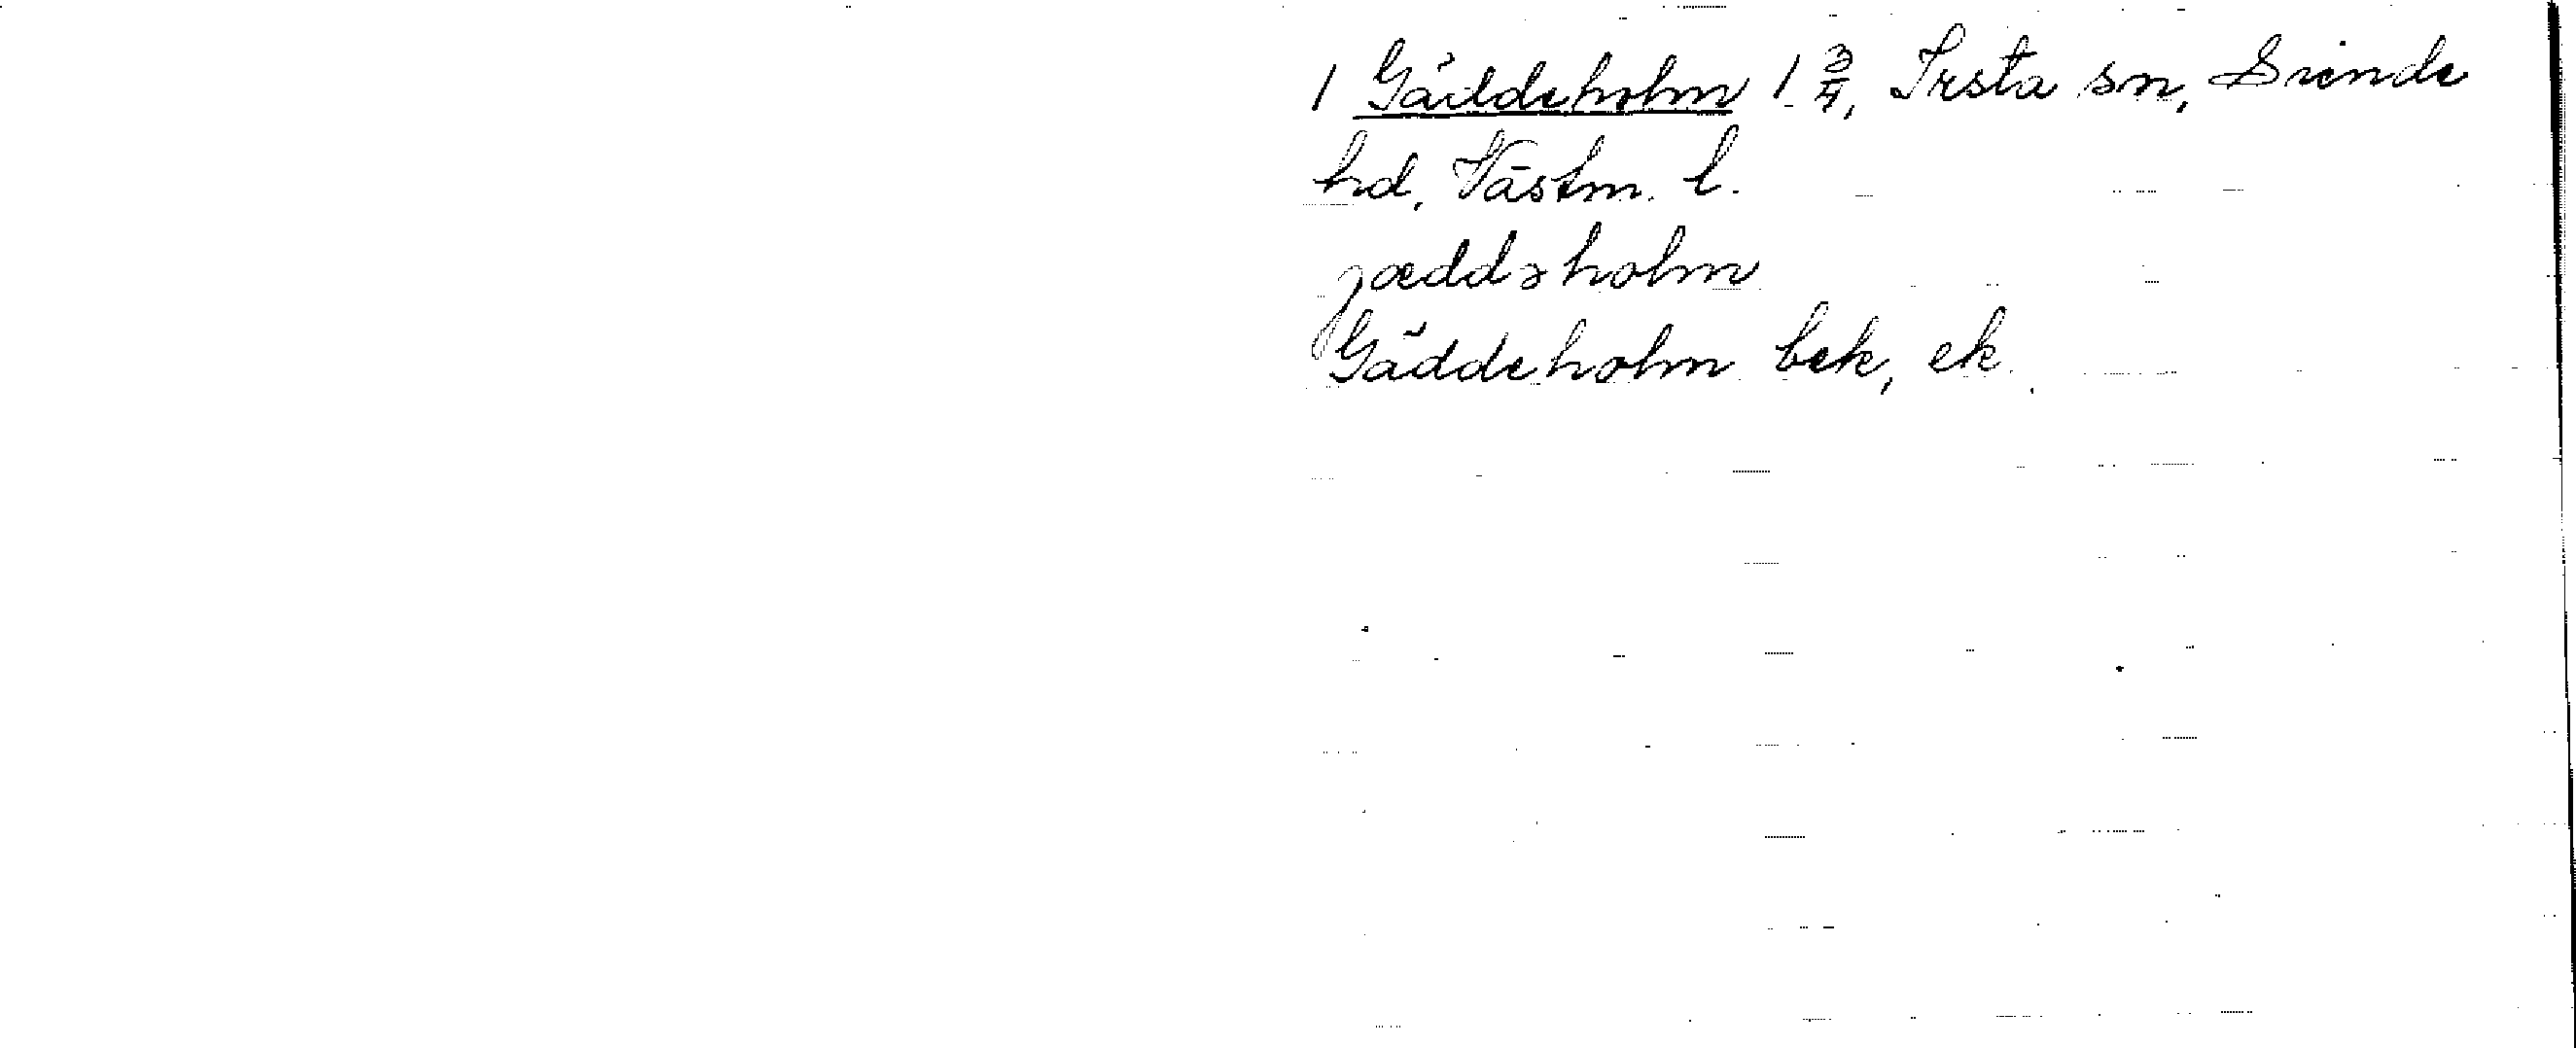 1 Gäddeholm 1 3/4, Irsta sn, Siende
hd, Västm. l.
jæddəholm
Gäddeholm bek, ek.